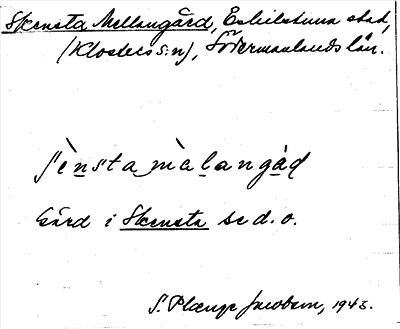 Skensta Mellangård, Eskilstuna stad,
(Klosters s:n), Södermanlands län.
ʃènsta mèlangå̀ḍ
Gård i Skensta se d. o.
S. Plænge Jacobson, 1943.